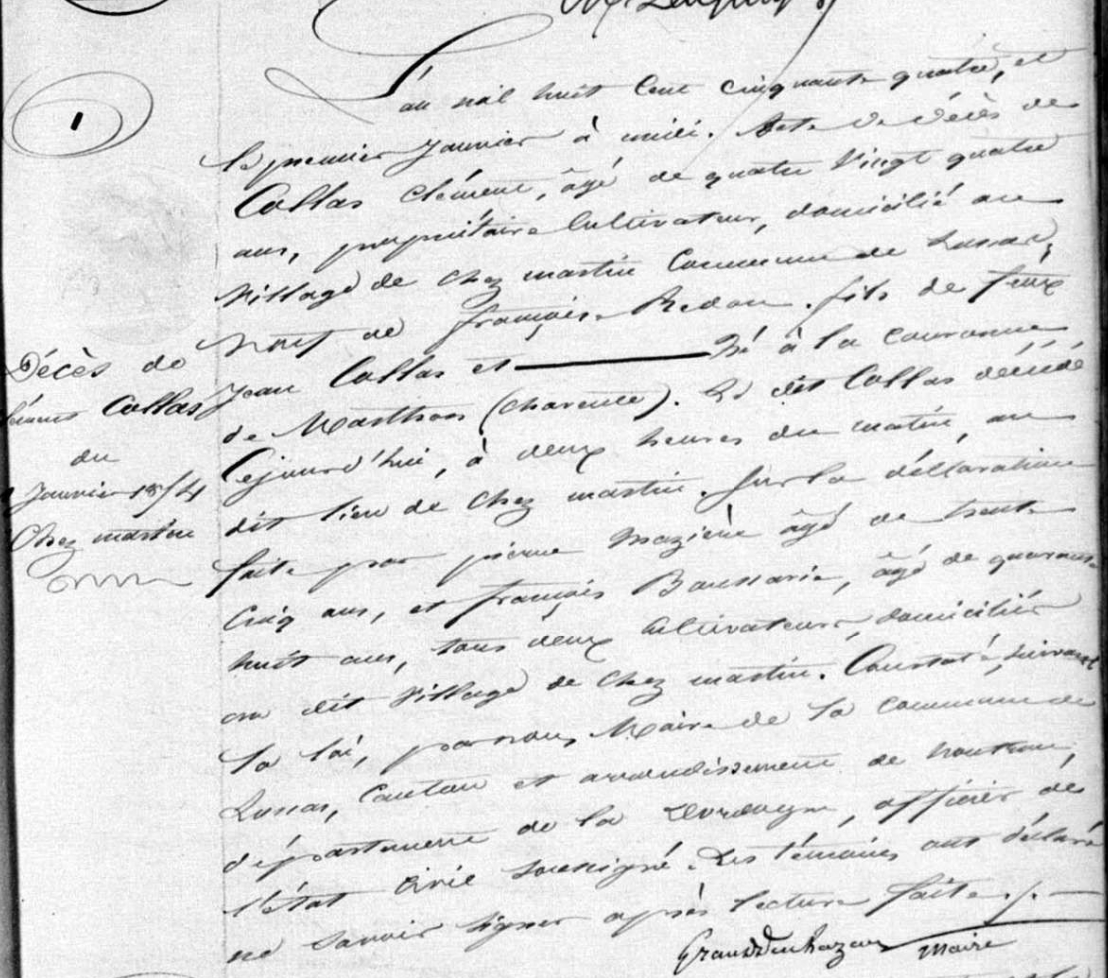 1
an mil huit Cent Cinquante quatre, et
le premier Janvier à midi. Acte de décès de
Collas Clément, âgé de quatre Vingt quatre
ans, propriétaire Cultivateur, domicilié au
Village de Chez martin Commune de Lussas,
Veuf de françoise Redon. fils de feux
Jean Collas et ——— Né à la Couronne
de Marthon (Charente). Le dit Collas décédé
Cejourd'hui, à deux heures du matin, au
dit lieu de Chez martin. Sur la déclaration
faite par pierre Mazière âgé de trente
Cinq ans, et françois Boussarie, âgé de quarante
huit ans, tous deux Cultivateurs, domiciliés
au dit Village de Chez martin. Constaté, suivant
la loi, par nous, Maire de la Commune de
Lussas, Canton et arrondissement de Nontron,
département de la Dordogne, officier de
l'état Civil soussigné. Les témoins ont déclaré
ne savoir signer après lecture faite./.
maire
Décès de
Collas
du
Janvier 1854
Chez martin